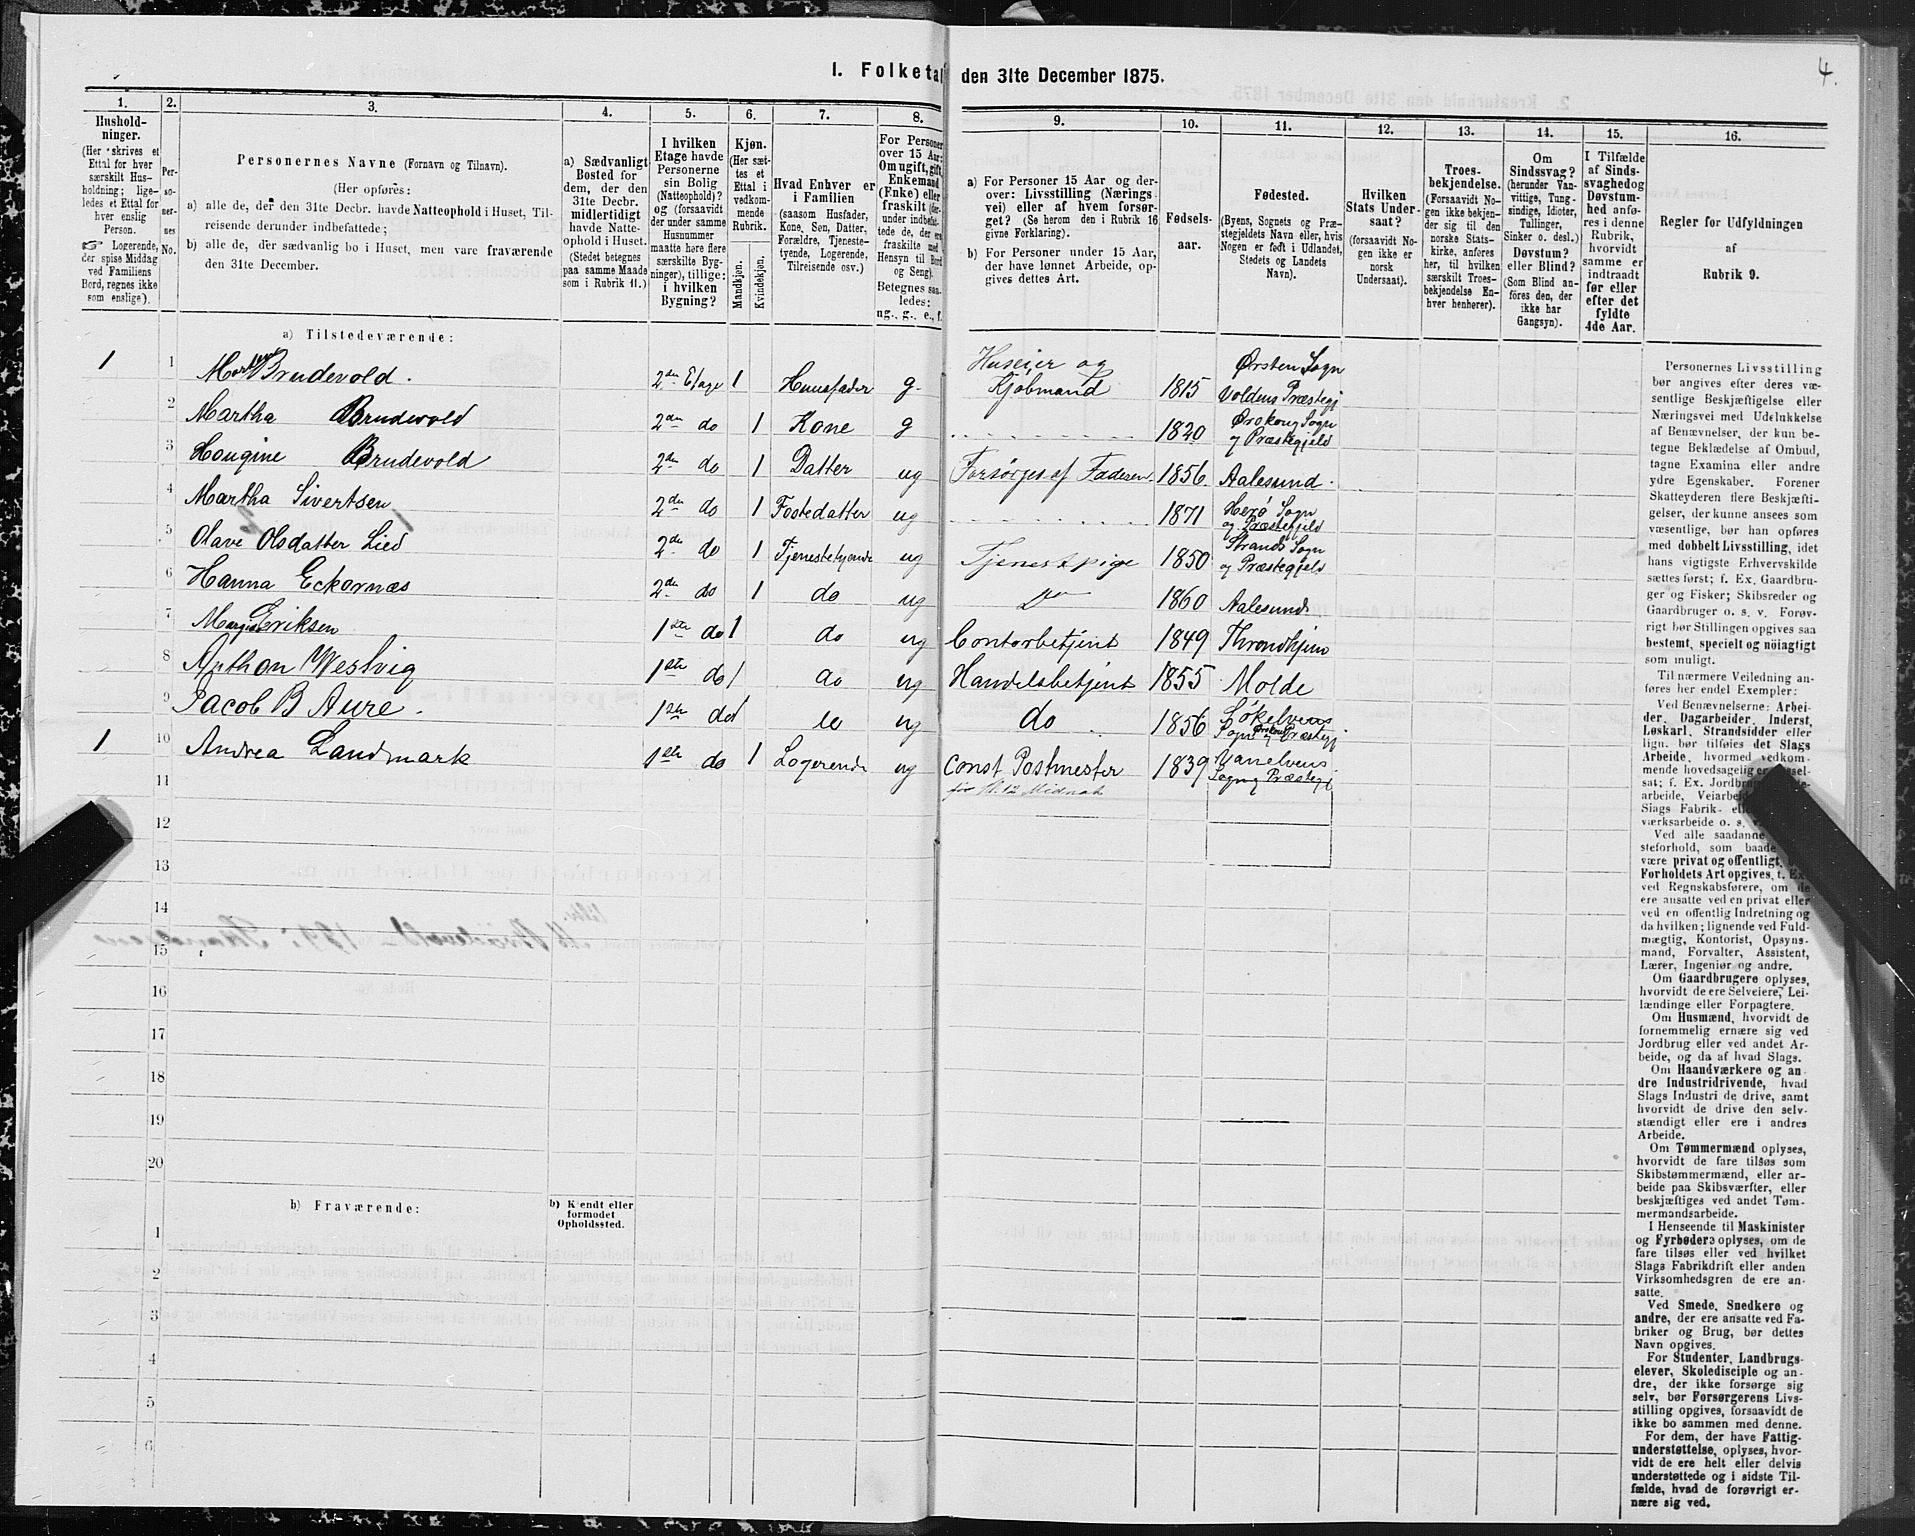 4.
1. Folketal den 31te December 1875.
1.
2.
3.
4.
5.
6.
7.
8.
9.
10.
11.
12.
13.
14.
15.
16.
Hushold-
ninger.
(Her skrives et
Ettal for hver
særskilt Hus-
holdning; lige-
ledes et Ettal for
hver enslig
Person.
☞ Logerende,
der spise Middag
ved Familiens
Bord, regnes ikke
som enslige).
Per-
so-
ner-
nes
No.
Personernes Navne (Fornavn og Tilnavn).
(Her opføres:
a) alle de, der den 31te Decbr. havde Natteophold i Huset, Til-
reisende derunder indbefattede;
b) alle de, der sædvanlig bo i Huset, men vare fraværende
den 31te December.
a) Sædvanligt
Bosted for
dem, der den
31te Decbr.
midlertidigt
havde Natte-
ophold i Huset.
(Stedet betegnes
paa samme Maade
som i Rubrik 11.)
I hvilken
Etage havde
Personerne
sin Bolig
(Natteophold)?
og (forsaavidt
der under samme
Husnummer
maatte høre flere
særskilte Byg-
ninger), tillige:
i hvilken
Bygning?
Kjøn.
(Her sæt-
tes et
Ettal i
vedkom-
mende
Rubrik.
Mandkjøn.
Kvindekjøn.
Hvad Enhver er
i Familien
(saasom Husfader,
Kone, Søn, Datter,
Forældre, Tjeneste-
tyende, Logerende,
Tilreisende osv.)
For Personer
over 15 Aar:
Om ugift, gift,
Enkemand
(Enke) eller
fraskilt
Hensyn til Bord
og Seng).
ledes:
ug., g., e., f.
a) For Personer 15 Aar og der-
over: Livsstilling (Nærings-
vei) eller af hvem forsør-
get? (Se herom den i Rubrik 16
givne Forklaring).
b) For Personer under 15 Aar,
der have lønnet Arbeide, op-
gives dettes Art.
Fødsels-
aar.
Fødested.
(Byens, Sognets og Præ-
stegjeldets Navn eller, hvis
Nogen er født i Udlandet,
Stedets og Landets
Navn).
Hvilken
Stats Under-
saat?
(forsaavidt No-
gen ikke er
norsk
Undersaat).
Troes-
bekjendelse.
(Forsaavidt No-
gen ikke bekjen-
der sig til den
norske Stats-
kirke, anføres
her, til hvilken
særskilt Troes-
bekjendelse En-
hver henhører).
Om
Sindssvag?
(herunder Van-
vittige, Tung-
sindige, Idioter,
Tullinger,
Sinker o. desl.)
Døvstum?
eller Blind?
(Som Blind an-
føres den, der
ikke har
Gangsyn).
I Tilfælde
af Sinds-
svaghed og
Døvstum-
hed anfø-
res i denne
Rubrik,
hvorvidt
samme er
indtraadt
før eller
efter det
fyldte
4de Aar.
Regler for Udfyldningen
af
Rubrik 9.
a) Tilstedeværende:
1 1 Brudevold. 2den Etage 1 Huusfader g. Huseier og Kjøbmand 1815 Ørsten Sogn Voldens Præstegj
2 Martha Brudevold 2den do 1 Kone g 1820 Ørskoug Sogn og Præstegjeld
3 Hougine Brudevold 2den do 1 Datter ug Forsørges af Faderen 1856 Aalesund.
4 Martha Sivertsen 2den do 1 Fostedatter ug 1871 Herø Sogn og Præstegjeld
5 Olave Olsdatter Lied 2den do 1 ug Tjenestepige 1850 Strands Sogn og Præstegjeld
6 Hanna Eckornæs 2den do 1 do ug Do 1860 Aalesund
7 Eriksen 1ste do 1 do ug Contorbetjent 1849 Throndhjem
8 Anthon Westvig 1ste do 1 do ug Handelsbetjent 1855 Molde
9 Jacob B Aure. 1ste do 1 do ug do 1856 Søkelvens Sogn Ørskoug Præstegj
1 10 Andrea Landmark 1ste do 1 Logerende ug Const Postmester 1839 Vanelvens Sogn og Præstegj
før Kl. 12 Midnat
11
12
13
14
15
16
17
18
19
20
b) Fraværende:
b) Kjendt eller
formodet
Opholdssted.
1
2
3
4
5
6
Personernes Livsstilling
bør angives efter deres væ-
sentlige Beskjæftigelse eller
Næringsvei med Udelukkelse
af Benævnelser, der kun be-
tegne Beklædelse af Ombud,
tagne Examina eller andre
ydre Egenskaber. Forener
Skatteyderen flere Beskjæfti-
gelser, der kunne ansees som
væsentlige, bør han opføres
med dobbelt Livsstilling, idet
hans vigtigste Erhvervskilde
sættes først; f. Ex. Gaardbru-
ger og Fisker; Skibsreder og
Gaardbruger o. s. v. Forøv-
rigt bør Stillingen opgives saa
bestemt, specielt og nøiagtigt
som muligt.
Til nærmere Veiledning an-
føres her endel Exempler:
Ved Benævnelserne: Arbei-
der, Dagarbeider, Inderst,
Løskarl, Strandsidder eller
lign. bør tilføies det Slags
Arbeide, hvormed vedkom-
mende hovedsagelig er
sat; f. Ex.
arbeide,
Slags Fabrik-
værksarbeide o. s. v.
Ved alle saadanne
steforhold, som baade
være privat og offentligt,
Forholdets Art opgives, f. Ex.
ved Regnskabsførere, om de
ere ansatte ved en privat eller
ved en offentlig Indretning og
da hvilken; lignende ved Fuld-
mægtig, Kontorist, Opsyns-
mand, Forvalter, Assistent,
Lærer, Ingeniør og andre.
Om Gaardbrugere oplyses,
hvorvidt de ere Selveiere, Lei-
lændinge eller Forpagtere.
Om Husmænd, hvorvidt de
fornemmelig ernære sig ved
Jordbrug eller ved andet Ar-
beide, og da af hvad Slags.
Om Haandværkere og an-
dre Industridrivende, hvad
Slags Industri de drive, samt
hvorvidt de drive den selv-
stændigt eller ere i andres
Arbeide.
Om Tømmermænd oplyses,
hvorvidt de fare tilsøs som
Skibstømmermænd, eller ar-
beide paa Skibsværfter, eller
beskjæftiges ved andet Tøm-
mermandsarbeide.
I Henseende til Maskinister
og Fyrbødere oplyses, om de
fare tilsøs eller ved hvilket
Slags Fabrikdrift eller anden
Virksomhedsgren de ere an-
satte.
Ved Smede, Snedkere og
andre, der ere ansatte ved Fa-
briker og Brug, bør dettes
Navn opgives.
For Studenter, Landbrugs-
elever, Skoledisciple og an-
dre, der ikke forsørge sig
selv, bør Forsørgerens Livs-
stilling opgives, forsaavidt de
ikke bo sammen med denne.
For dem, der have Fattig-
understøttelse, oplyses, hvor-
vidt de ere helt eller delvis
understøttede og i sidste Til-
fælde, hvad de forøvrigt er-
nære sig ved.